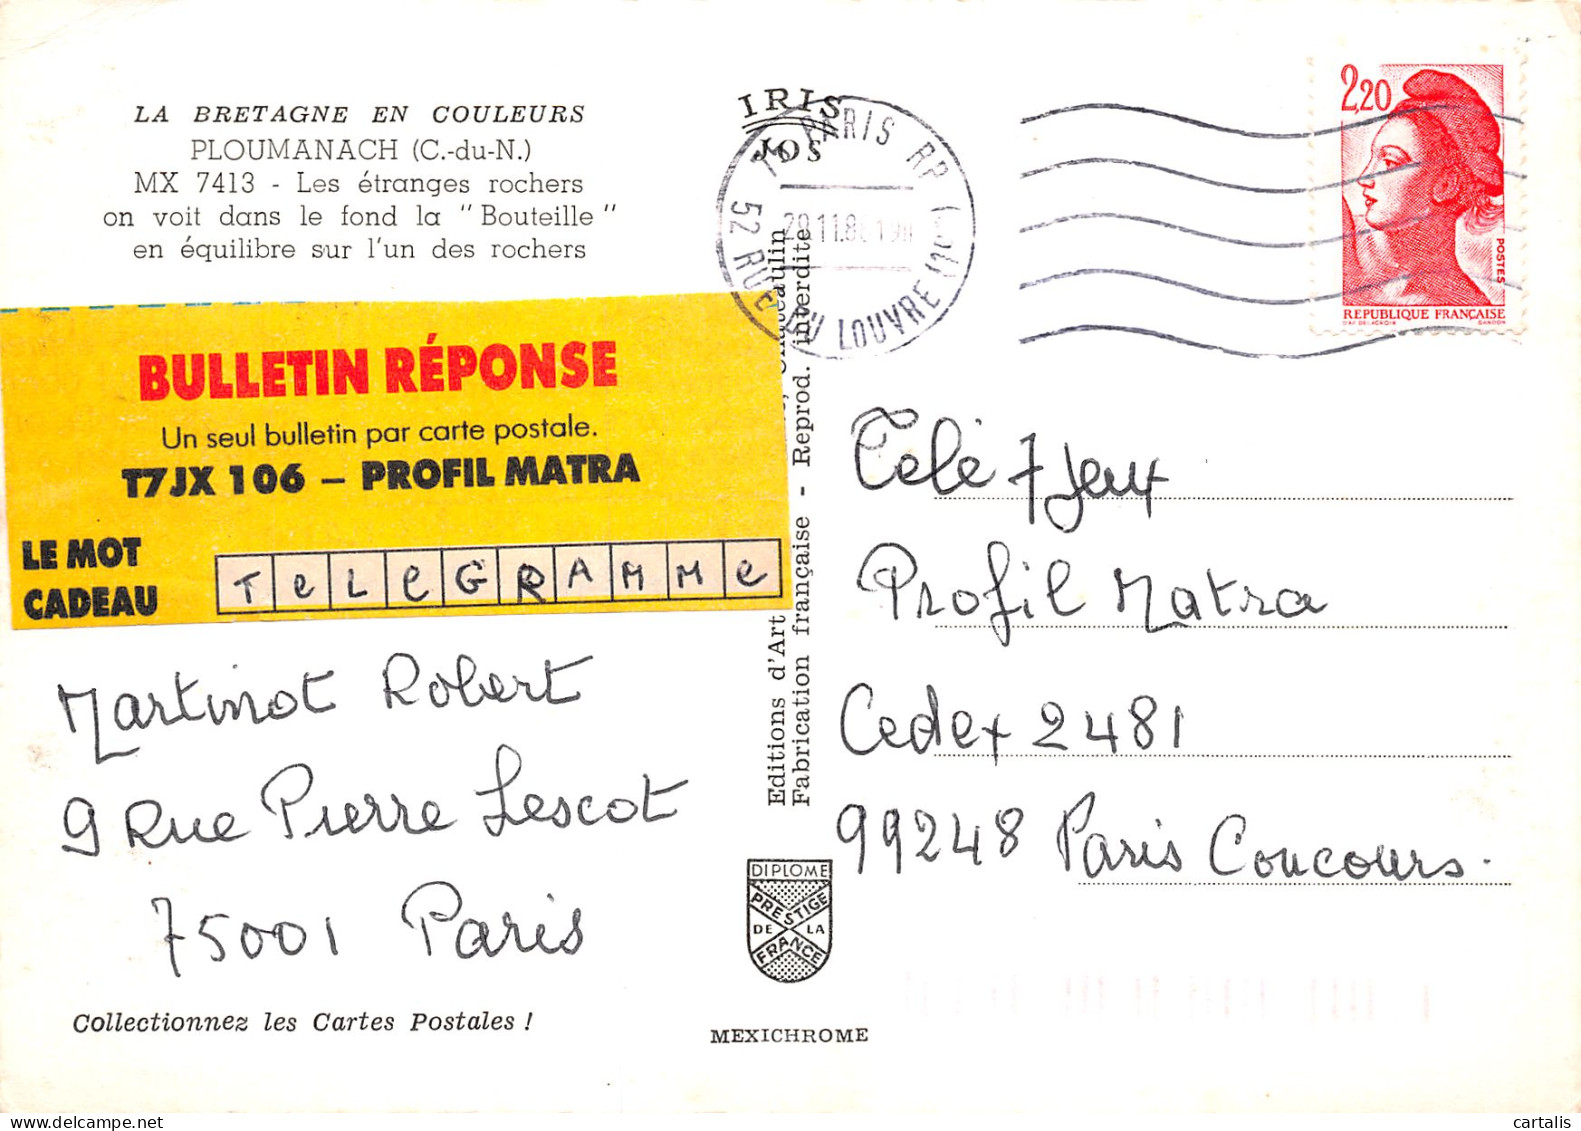 LA BRETAGNE EN COULEURS
PLOUMANACH (C.-du-N.)
MX 7413 - Les étranges rochers
on voit dans le fond la "Bouteille"
en équilibre sur l'un des rochers
IRIS
JOS
75 PARIS RP
52 RUE DU LOUVRE
2,20
POSTES
REPUBLIQUE FRANÇAISE
D'AP. DELACROIX GANDON
BULLETIN RÉPONSE
Un seul bulletin par carte postale.
T7JX 106 – PROFIL MATRA
LE MOT
CADEAU
TeLeGRAMMe
Martinot Robert
9 Rue Pierre Lescot
75001 Paris
Editions d'Art
Fabrication française - Reprod. interdite
Télé 7 Jeux
Profil Matra
Cedex 2481
99248 Paris Concours.
DIPLOME
PRESTIGE
DE LA
FRANCE
Collectionnez les Cartes Postales !
MEXICHROME
cartalis